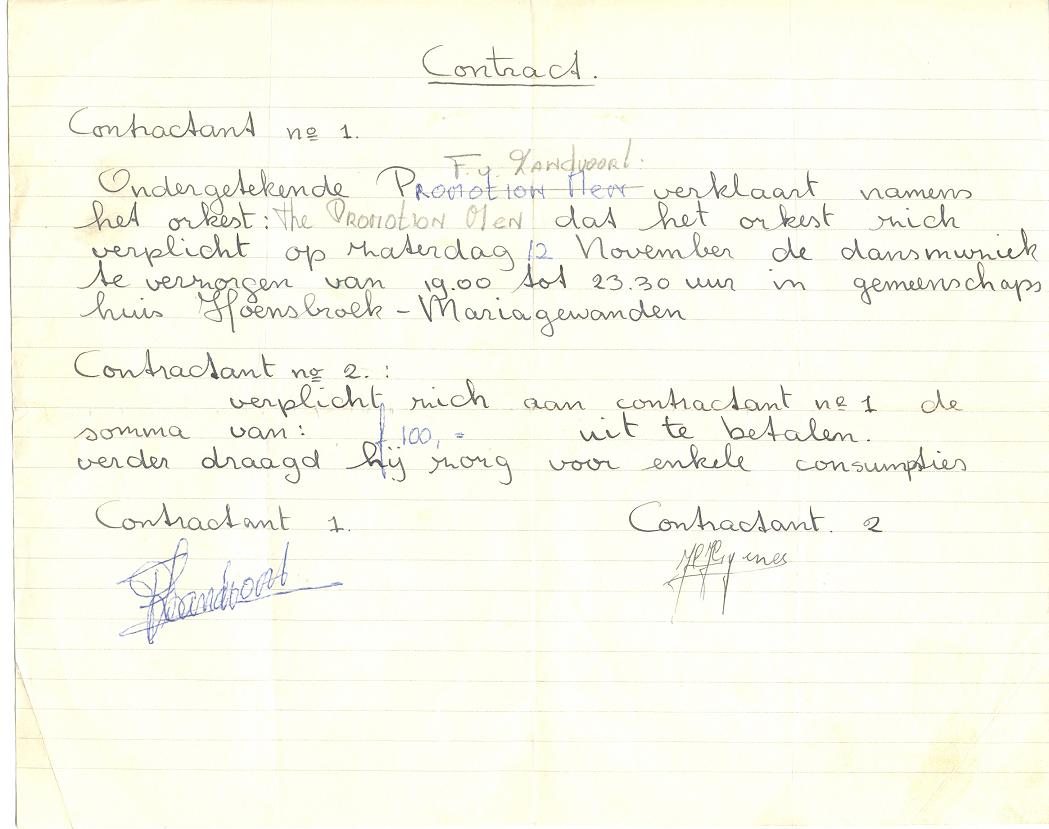 Contract.
Contractant nº 1.
F. v. Zandvoort.
Ondergetekende Promotion Men verklaart namens
het orkest: The Promotion Men dat het orkest zich
verplicht op zaterdag 12 November de dansmuziek
te verzorgen van 19.00 tot 23.30 uur in gemeenschaps
huis Hoensbroek - Mariagewanden
Contractant nº 2. :
verplicht zich aan contractant nº 1 de
somma van: ƒ 100,= uit te betalen.
verder draagd hij zorg voor enkele consumpties
Contractant 1. Contractant. 2
FvZandvoort